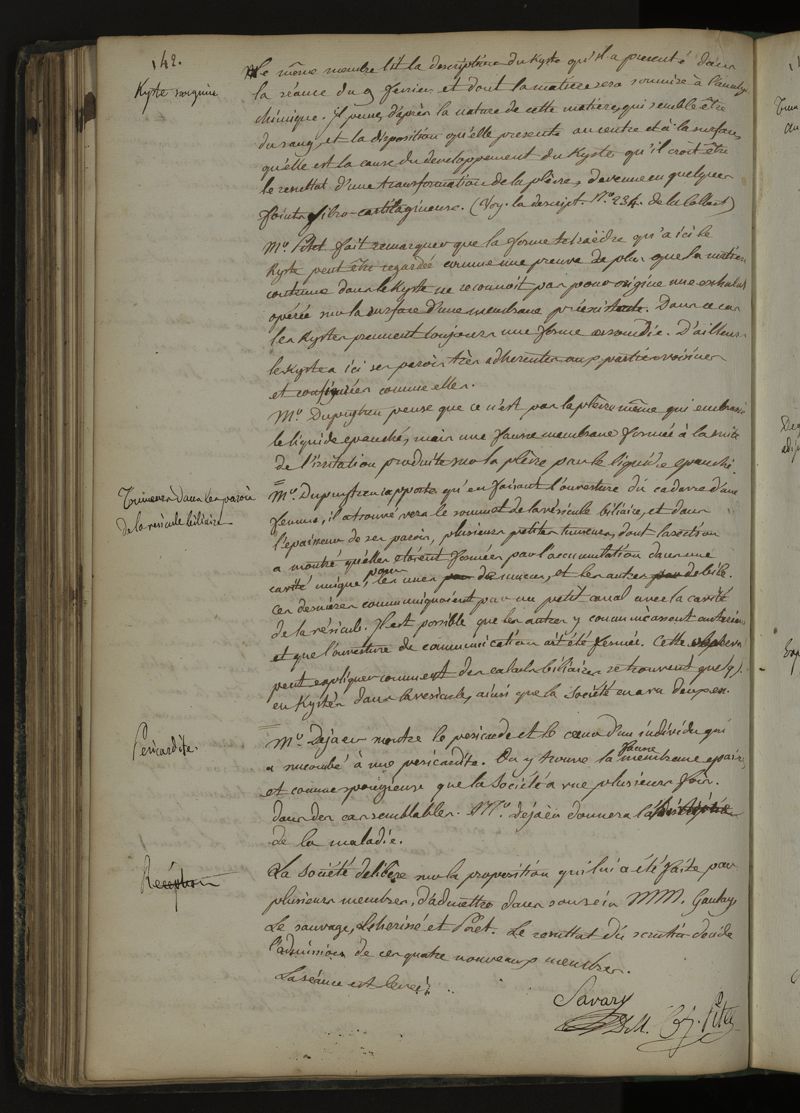 142.
Kyste sanguin
Le même membre lit la description du Kyste qu'il a présenté dans
la séance du 9 février, et dont la matière sera soumise à l'analyse
chimique. Il pense, d'après la nature de cette matière, qui semble être
du sang, et la disposition qu'elle présente au centre et à la surface,
qu'elle est la cause du développement du Kyste, qu'il croit être
le resultat d'une transformation de la plèvre, devenue en quelques
points fibro-cartilagineuse. (Voy. la descript. N.o 234. de la Collect)
Mr. Petit fait remarquer que la forme tetraèdre qu'a ici le
Kyste peut être regardée comme une preuve de plus que la matière
contenue dans le Kyste ne reconnoit pas pour origine une exhalat
opérée sur la surface d'une membrane préexistante. Dans ce cas
les Kystes prennent toujours une forme arrondie. D'ailleurs
le Kyste a ici ses parois très adherentes aux parties voisines
et configurées comme elles.
Mr. Dupuytren pense que ce n'est pas la plèvre même qui embrasse
le liquide épanché, mais une fausse membrane formée à la suite
de l'irritation produite sur la plèvre par le liquide épanché.
Tumeurs dans les parois
de la vésicule biliaire
Mr. Dupuytren rapporte qu'en faisant l'ouverture du cadavre d'une
femme, il a trouvé vers le sommet de la vésicule biliaire, et dans
l'épaisseur de ses parois, plusieurs petites tumeurs, dont la section
a montré qu'elles étoient formées par l'accumulation dans une
cavité unique, pour les unes de mucus, et les autres de bile.
Ces dernières communiquoient par un petit canal avec la cavité
de la vésicule. Il est possible que les autres y communicassent
et que l'ouverture de communication ait été fermée. Cette
peut expliquer comment des calculs biliaires se trouvent quelqf.
en Kystés dans la vesicule, ainsi que la Société en a vu deux ex.
Péricardite.
Mr. Dejaer montre le péricarde et le cœur d'un individu qui
a succombé à une pericardite. On y trouve la fausse membrane épaisse
et comme spongieuse que la Société a vue plusieurs fois
dans des cas semblables. Mr. dejaer donnera la description
de la maladie.
Réception
La Société délibère sur la proposition qui lui a été faite par
plusieurs membres, d'admettre dans son sein MM.
Le sauvage, et Le resultat du scrutin décide
l'admission de ces quatre nouveaux membres.
La séance est levée.
Savary
D.M.